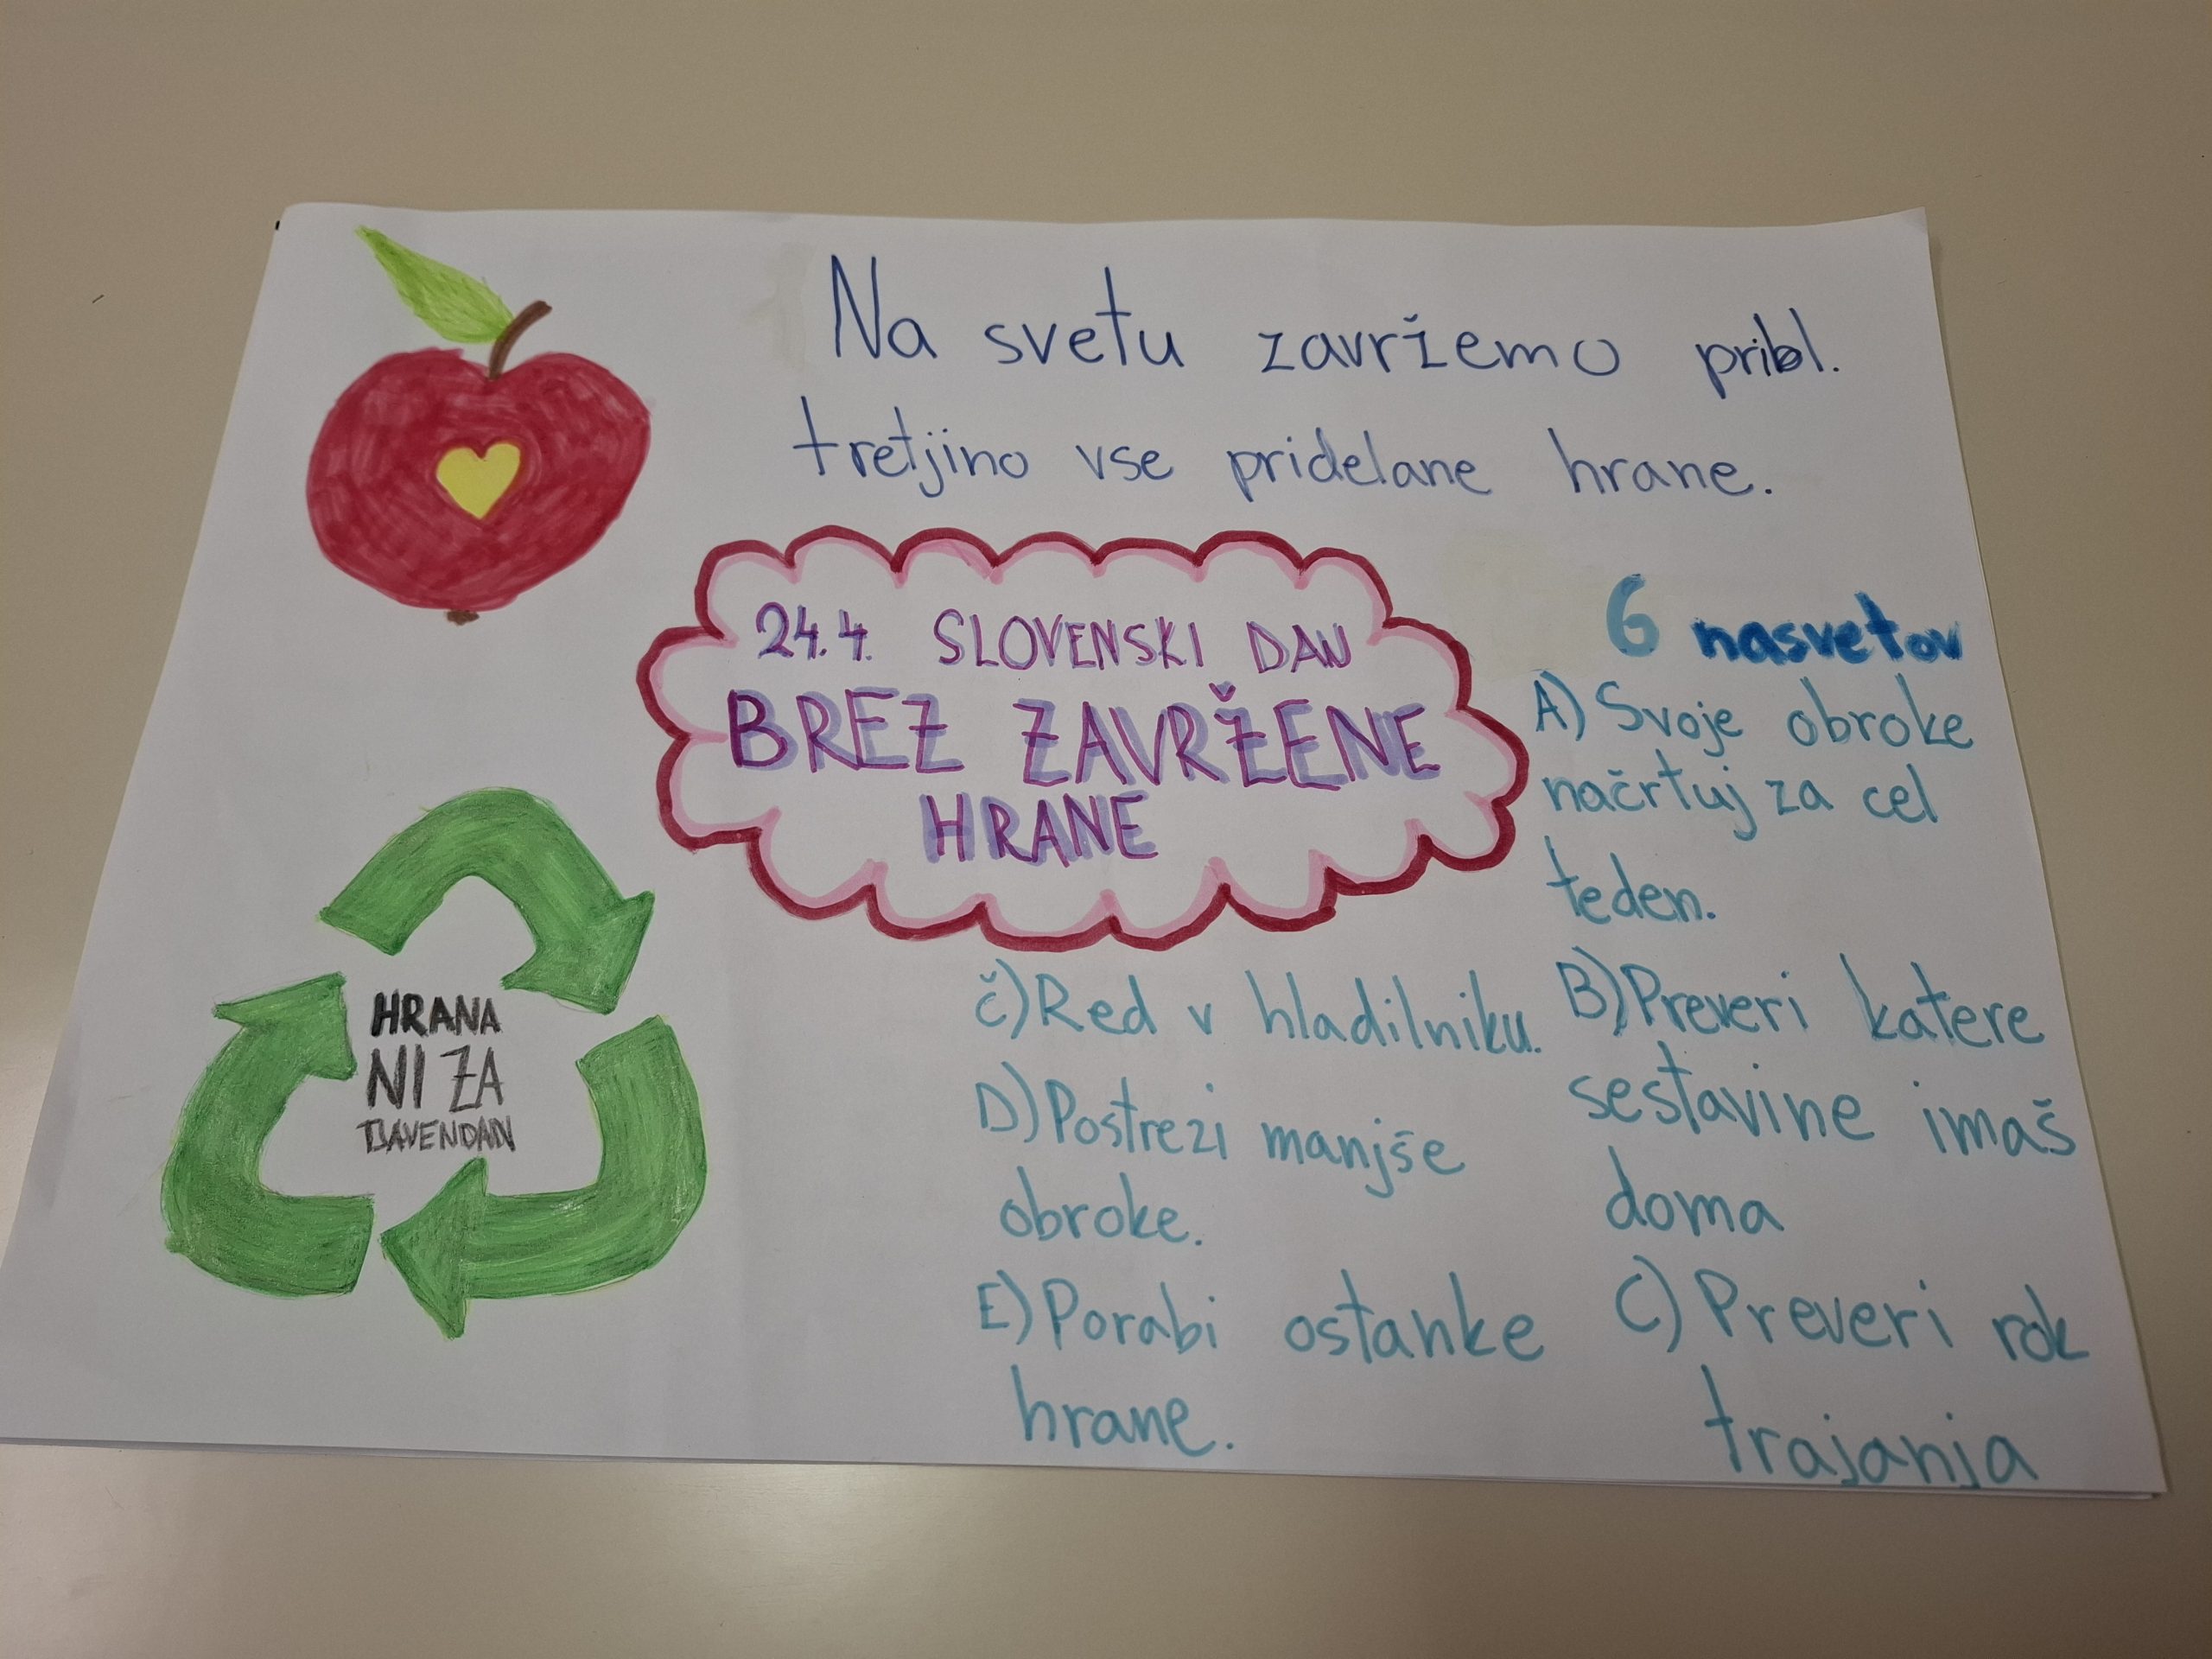 Na svetu zavržemo pribl.
tretjino vse pridelane hrane.
24.4. SLOVENSKI DAN
BREZ ZAVRŽENE
HRANE
6 nasvetov
A) Svoje obroke
načrtuj za cel
teden.
B) Preveri katere
sestavine imaš
doma
C) Preveri rok
trajanja
Č) Red v hladilniku.
D) Postrezi manjše
obroke.
E) Porabi ostanke
hrane.
HRANA
NI ZA